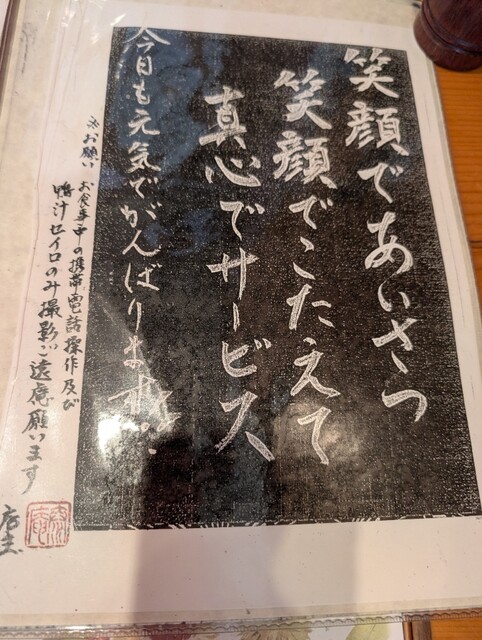 笑顔であいさつ
笑顔でこたえて
真心でサービス
今日も元気でがんばります
※お願い
お食事中の携帯電話操作及び
鴨汁セイロのみ撮影ご遠慮願います
店主